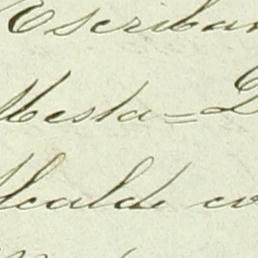 Escriban
Mesta=
Alcalde co